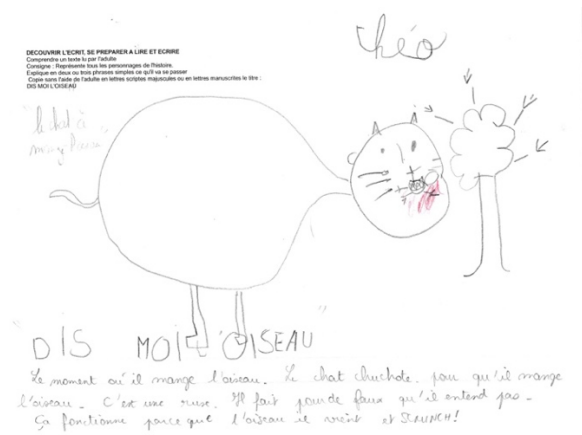 Théo
DECOUVRIR L'ECRIT, SE PREPARER A LIRE ET ECRIRE
Comprendre un texte lu par l'adulte
Consigne : Représente tous les personnages de l'histoire.
Explique en deux ou trois phrases simples ce qu'il va se passer
Copie sans l'aide de l'adulte en lettres scriptes majuscules ou en lettres manuscrites le titre :
DIS MOI L'OISEAU
"le chat à
DIS MOI L'OISEAU"
Le moment où il mange l'oiseau. Le chat chuchote pour qu'il mange
l'oiseau. C'est une ruse. Il fait pour de faux qu'il entend pas.
Ça fonctionne parce que l'oiseau il vient et SCRUNCH!